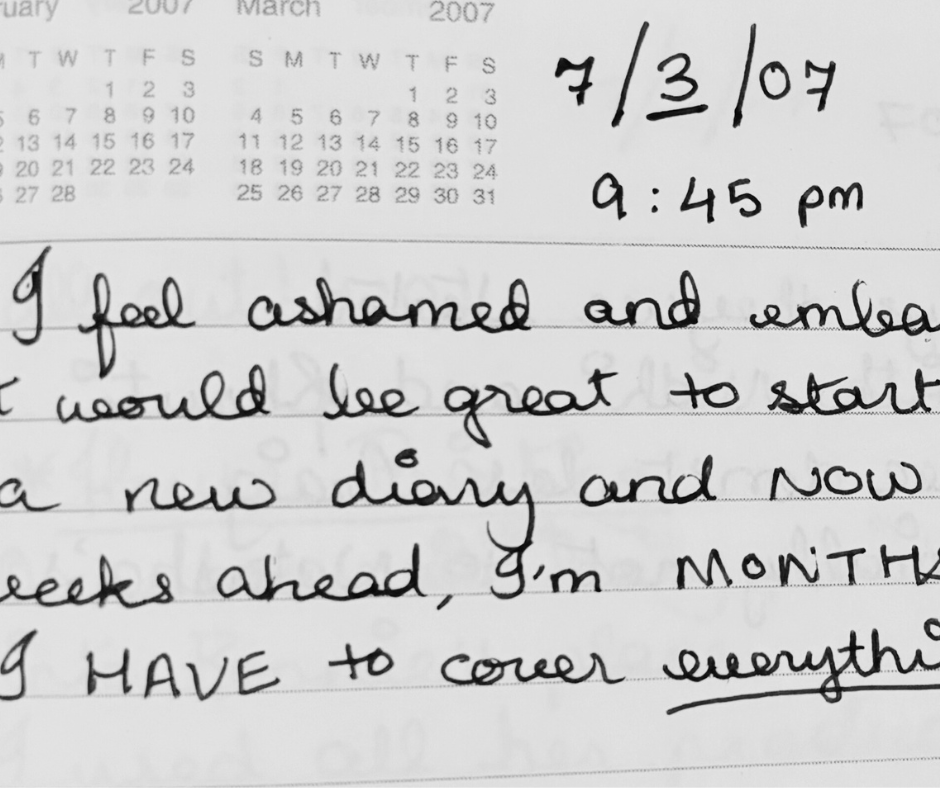 ruary 2007 March 2007
M T W T F S S M T W T F S
1 2 3 1 2 3
5 6 7 8 9 10 4 5 6 7 8 9 10
2 13 14 15 16 17 11 12 13 14 15 16 17
9 20 21 22 23 24 18 19 20 21 22 23 24
6 27 28 25 26 27 28 29 30 31
7/3/07
9:45 pm
I feel ashamed and emba
t would be great to start
a new diary and NOW
eeks ahead, I'm MONTHS
I HAVE to cover everythi